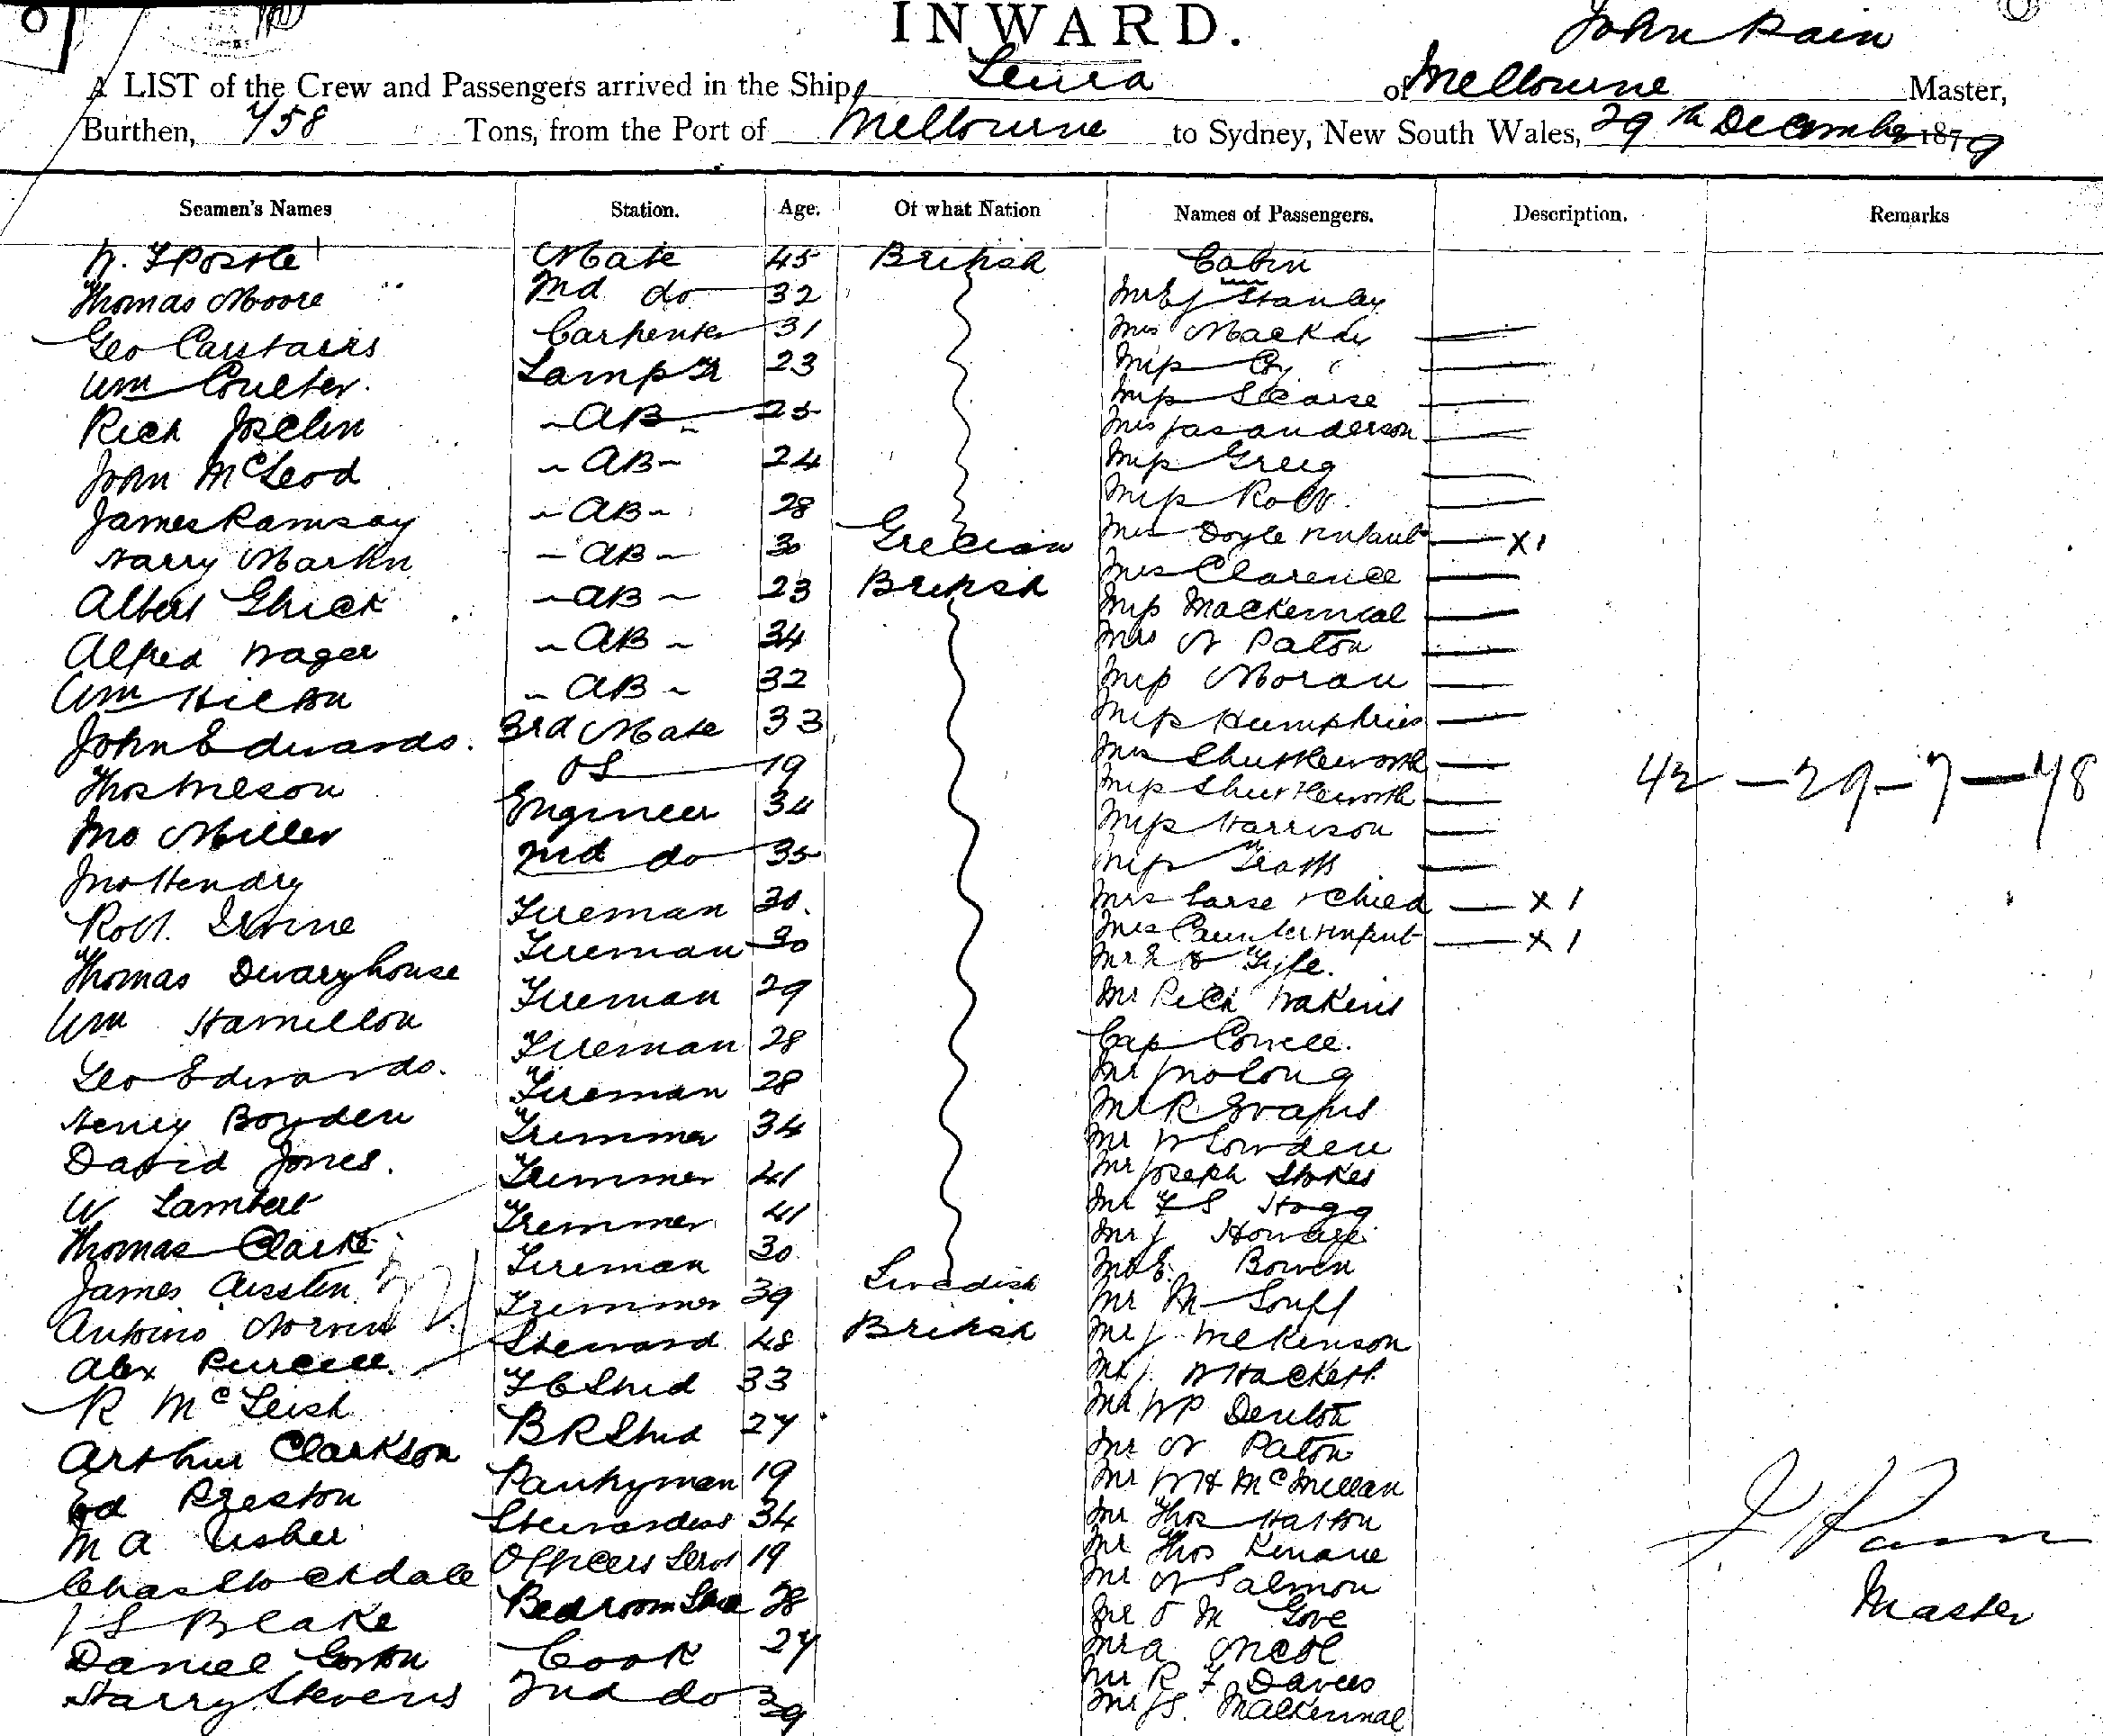 INWARD.
John Pain
A LIST of the Crew and Passengers arrived in the Ship, Leura of Melbourne Master,
Burthen, 758 Tons, from the Port of Melbourne to Sydney, New South Wales, 29th December 1879
Seamen's Names Station. Age. Of what Nation Names of Passengers. Description. Remarks
Mate 45 British Cabin
Thomas Moore 2nd do 32 Mr E J Stanley
Geo Carstairs Carpenter 31 Mrs Mackay
Wm Coulter. Lamp Tr 23 Miss Coy
Rich Joselin AB 25 Miss Searse
John McLeod AB 24 Mrs Jas Anderson
James Ramsay AB 28 Miss Greig
Harry Martin AB 30 Grecian Miss Robb
Albert Glick AB 23 British Mrs Doyle & infant X1
Alfred Wager AB 34 Mrs Clarence
Wm Hilton AB 32 Miss Mackennal
John Edwards. 3rd Mate 33 Mrs W Paton
Thos Wilson OS 19 Miss Moran
Jno Miller Engineer 34 Miss Humphries
Jno Hendry 2nd do 35 Mrs Shuttleworth
Robt. Irvine Fireman 30. Miss Shuttleworth 42 - 29 - 7 - 78
Thomas Fireman 30 Miss Harrison
Wm Hamilton Fireman 29 Miss
Geo Edwards. Fireman 28 Mrs Carse & Child X 1
Henry Boyden Fireman 28 Mrs & infant X 1
David Jones. Trimmer 34 Mr Fyfe.
W Lambert Trimmer 41 Mr Rich Wakens
Thomas Clarke Trimmer 41 Cap Cowell.
James Aissten Fireman 30 Mr Jno Long
Antoino Trimmer 39 Swedish Mr R Evans
Alex Purcell. Steward 48 British Mr W Lowden
R McLeish F C Stwd 33 Mr Joseph Stokes
Arthur Clarkson B R Stwd 27 Mr F S Hogg
Ed Preston Pantryman 19 Mr J
M A Usher Stewardess 34 Mr E. Bowen
Chas Stockdale Officers Servt 19 Mr M
J S Blake Bedroom Stwd 28 Mr J Wilkinson
Daniel Gorton Cook 27 Mr J. W Hackett
Harry Stevens 2nd do 39 Mr W P Denton
Mr W Paton
Mr W H McMillan
Mr Thos Hatton
Mr Thos Kinane
Mr W Salmon
Mr J M Gove
Mr A
Mr R F Davies
Mr J S. Mackennal
J Pain
Master